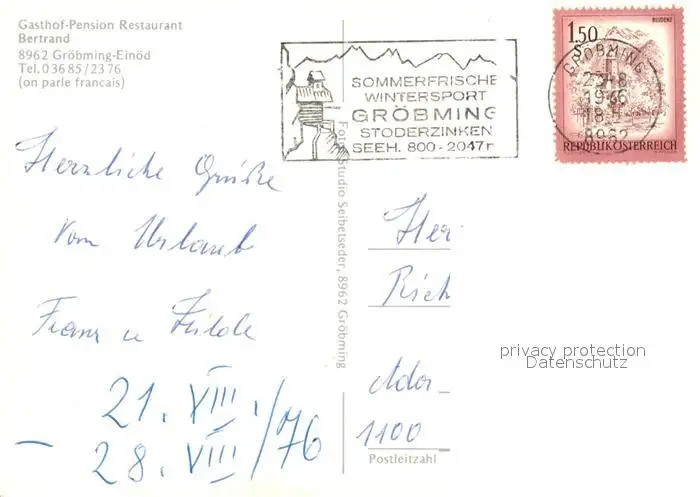 Gasthof-Pension Restaurant
Bertrand
8962 Gröbming-Einöd
Tel. 0 36 85 / 23 76
(on parle francais)
SOMMERFRISCHE
WINTERSPORT
GRÖBMING
STODERZINKEN
SEEH. 800 - 2047
1.50
S
BLUDENZ
REPUBLIK ÖSTERREICH
GRÖBMING
8962
Herzliche Grüße
vom Urlaub
Franz u Hilde
21. VIII.
- 28. VIII / 76
Foto Studio Seibetseder, 8962 Gröbming
Her
Rich
1100
Postleitzahl
privacy protection
Datenschutz